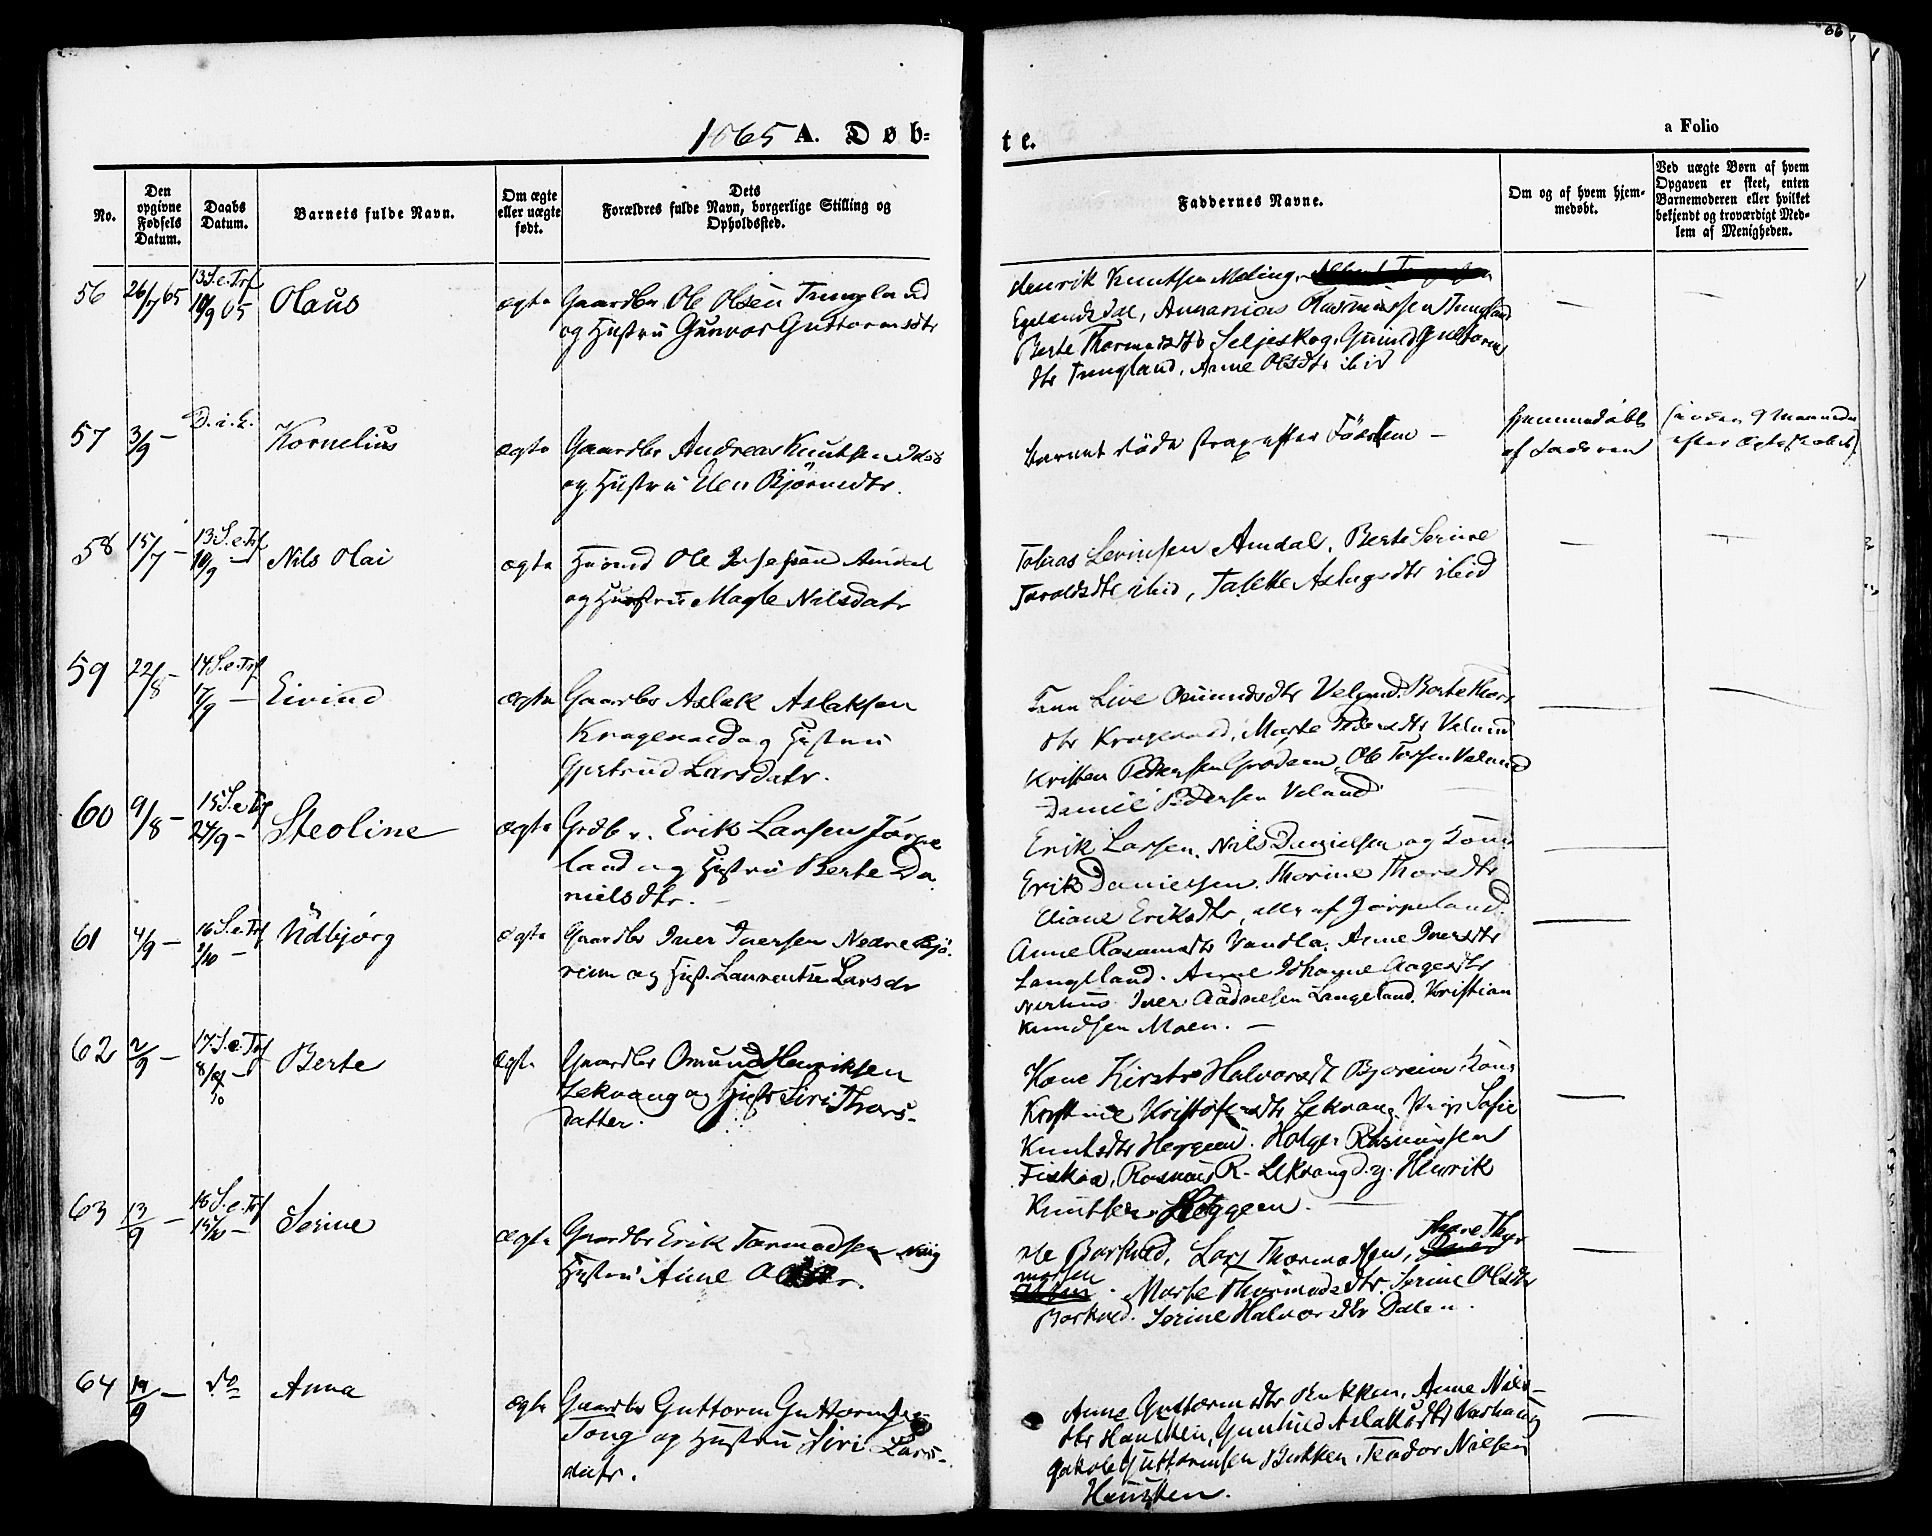 66
1865 A. Døb-
te.
a Folio
No.
Den opgivne Fødsels Datum.
Daabs Datum.
Barnets fulde Navn.
Om ægte eller uægte født.
Dets Forældres fulde Navn, borgerlige Stilling og Opholdssted.
Faddernes Navne.
Om og af hvem hjem-
medøbt.
Ved uægte Børn af hvem
Opgaven er skeet, enten
Barnemoderen eller hvilket
bekjendt og troværdigt Med-
lem af Menigheden.
56 26/7 65 13 S. e. Trf 10/9 65 Olaus ægte Gaardbr Ole Olsen Tungland
og Hustru Gunvor Guttormsdtr
Henrik Knutsen Meling,
Egelandsdal, Ananias Rasmussen Tungland
Berte Thormodsdtr Seljeskog, Guttorms
dtr Tungland, Anne Olsdtr ibid
57 3/9 — D. i. E. Kornelius ægte Gaardbr Andreas Knutsen
og Hustru Elen Bjørnsdtr.
Barnet døde strax efter Fødselen —
Hjemmedøbt
af Faderen
58 15/7 — 13 S. e. Trf 10/9 — Nils Olai ægte Husmd Ole Josefsen Amdal
og Hustru Magle Nilsdatr
Tobias Levinsen Amdal, Berte Serine
Taroldsdtr ibid, Talette Aslagsdtr ibid
59 22/8 — 14 S. e. Trf 17/9 — Eivind ægte Gaardbr Aslak Aslaksen
Kragevald og Hustru
Gjertrud Larsdatr.
Live Osmundsdtr Veland, Berte Thors
dtr Kragevald, Marte Pedersdtr Veland
Kristen Pedersen Grødem, Ole Torsen Veland
Daniel Pedersen Veland
60 9/8 — 15 S. e. Trf 24/9 — Steoline ægte Grdbr. Erik Larsen Jørpe
land og Hustru Berte Da
nielsdtr. —
Erik Larsen, Nils Danielsen og Kone
Erik Danielsen, Thorine Thorsdtr
Eliane Eriksdtr, alle af Jørpeland.
61 4/9 — 16 S. e. Trf 1/10 — Udbjørg ægte Gaardbr Iver Iversen Nedre Bjø
reim og Hust. Laurentse Larsdr
Anne Rasmusdtr Vandla, Anne Iversdtr
Langeland. Anne Johanne Aagesdtr
Nerhus Iver Aadnesen Langeland, Kristian
Knudsen Moen. —
62 2/9 — 17 S. e. Trf 8/10 — Berte ægte Gaardbr Osmund Henriksen
Lekvang og Hustr Siri Thors-
datter.
Kone Kirste Halvorsdt Bjøreim Kone
Kristine Kristofersdtr Lekvang Pige Sofie
Knutsdtr Heggem. Holger Rasmussen
Fiskaa, Rasmus R. Lekvang og Henrik
Knutsen Heggem. —
63 13/9 — 18 S. e. Trf 15/10 — Serine ægte Gaardbr Erik Tormodsen
Hustru Anne
Ole Barkved, Lars Thormodsen, Thore Thor
modsen. Marte Thormodsdtr, Serine Olsdtr
Barkved. Serine Halvorsdtr Dalen.
64 19/9 — do Anna ægte Gaardbr Guttorm Guttormsen
Tong og Hustru Siri Lars-
datr.
Anne Guttormsdtr Bakken, Anne Niels-
dtr Hausken, Gunhild Aslaksdtr Varhaug
Jakob Guttormsen Bakken, Teodor Nielsen
Hausken.